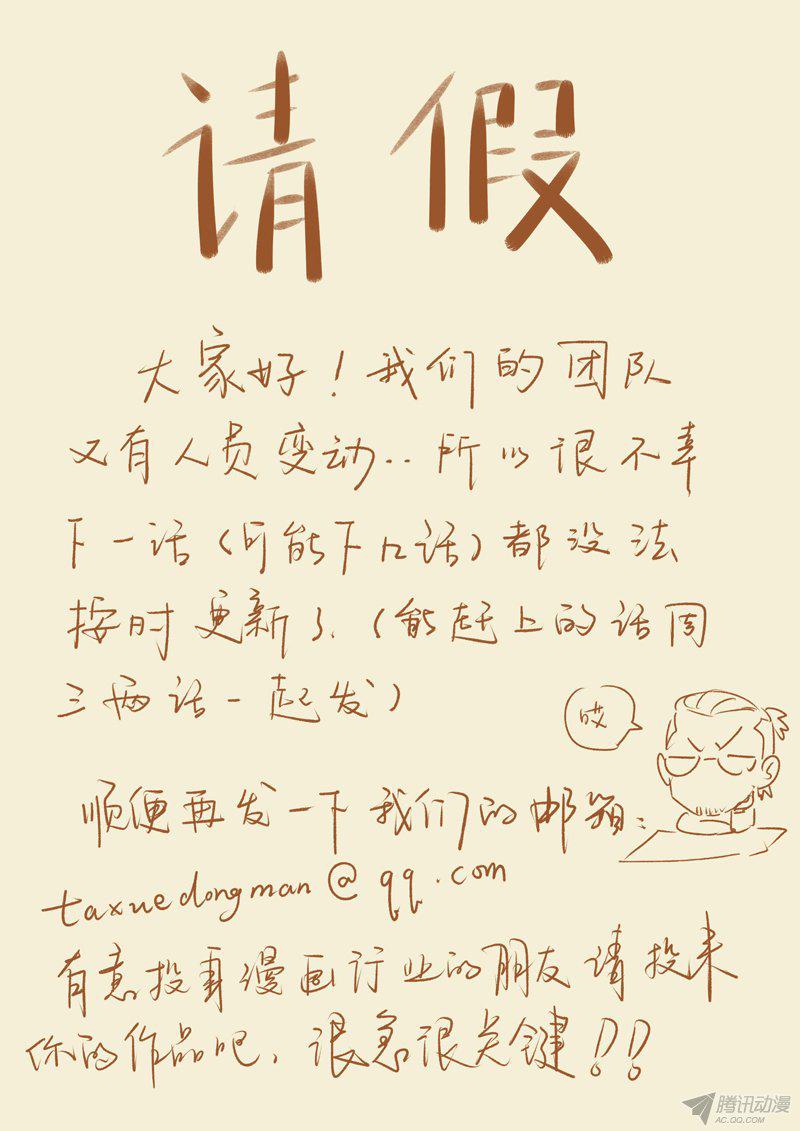 请假
大家好！我们的团队
又有人员变动..所以很不幸
下一话（可能下几话）都没法
按时更新了.（能赶上的话周
三两话一起发）
哎
顺便再发一下我们的邮箱：
taxuedongman@qq.com
有意投身漫画行业的朋友请投来
你的作品吧，很急很关键！！
腾讯动漫
AC.QQ.COM